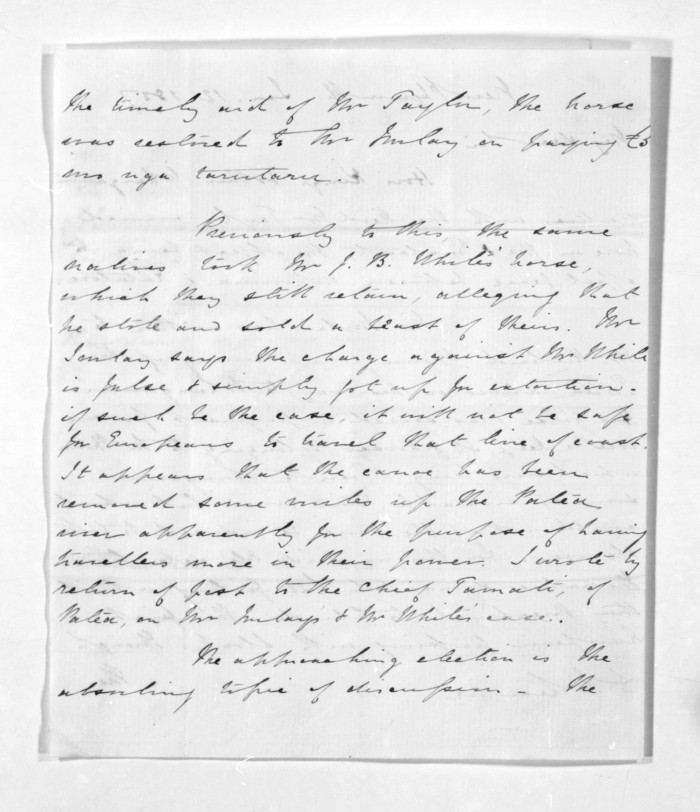 the timely aid of Mr Taylor, the horse
was restored to Mr Imlay on paying £5
mo nga tarutaru.
Previously to this, the same
natives took Mr J. B. White's horse,
which they still retain, alleging that
he stole and sold a beast of theirs. Mr
Imlay says the charge against Mr White
is false & simply got up for extortion -
if such be the case, it will not be safe
for Europeans to travel that line of coast.
It appears that the canoe has been
removed some miles up the Patea
river apparently for the purpose of having
travellers more in their power. I wrote by
return of post to the chief Tamati, of
Patea, on Mr Imlay's & Mr White's case.
The approaching election is the
absorbing topic of discussion - the